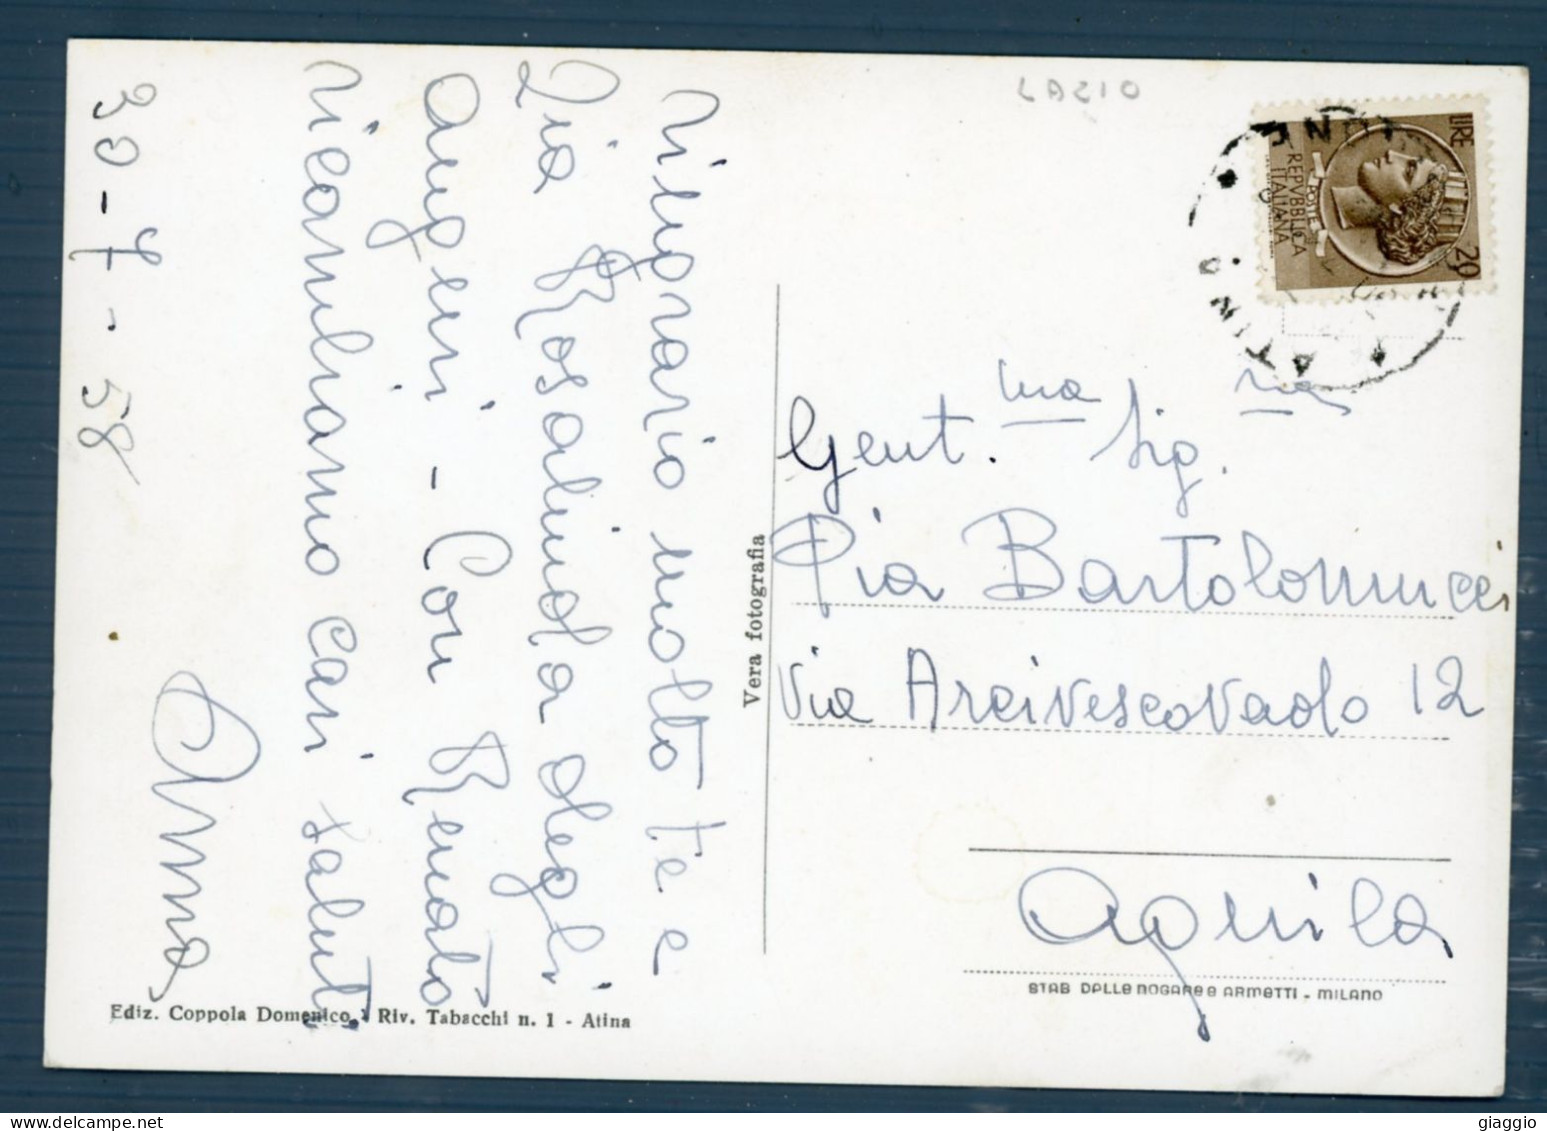 LAZIO
LIRE 20
REPVBBLICA
ITALIANA
POSTE
ATINA
Ringraziamo molto te e
Zia Rosalinda degli
auguri - Con Renato
ricambiamo cari saluti
Anna
30-7-58
Gent.ma Sig.ra
Pia Bartolomucci
Via Arcivescovado 12
Aquila
Vera fotografia
STAB DALLE NOGARE E ARMETTI - MILANO
Ediz. Coppola Domenico - Riv. Tabacchi n. 1 - Atina
giaggio